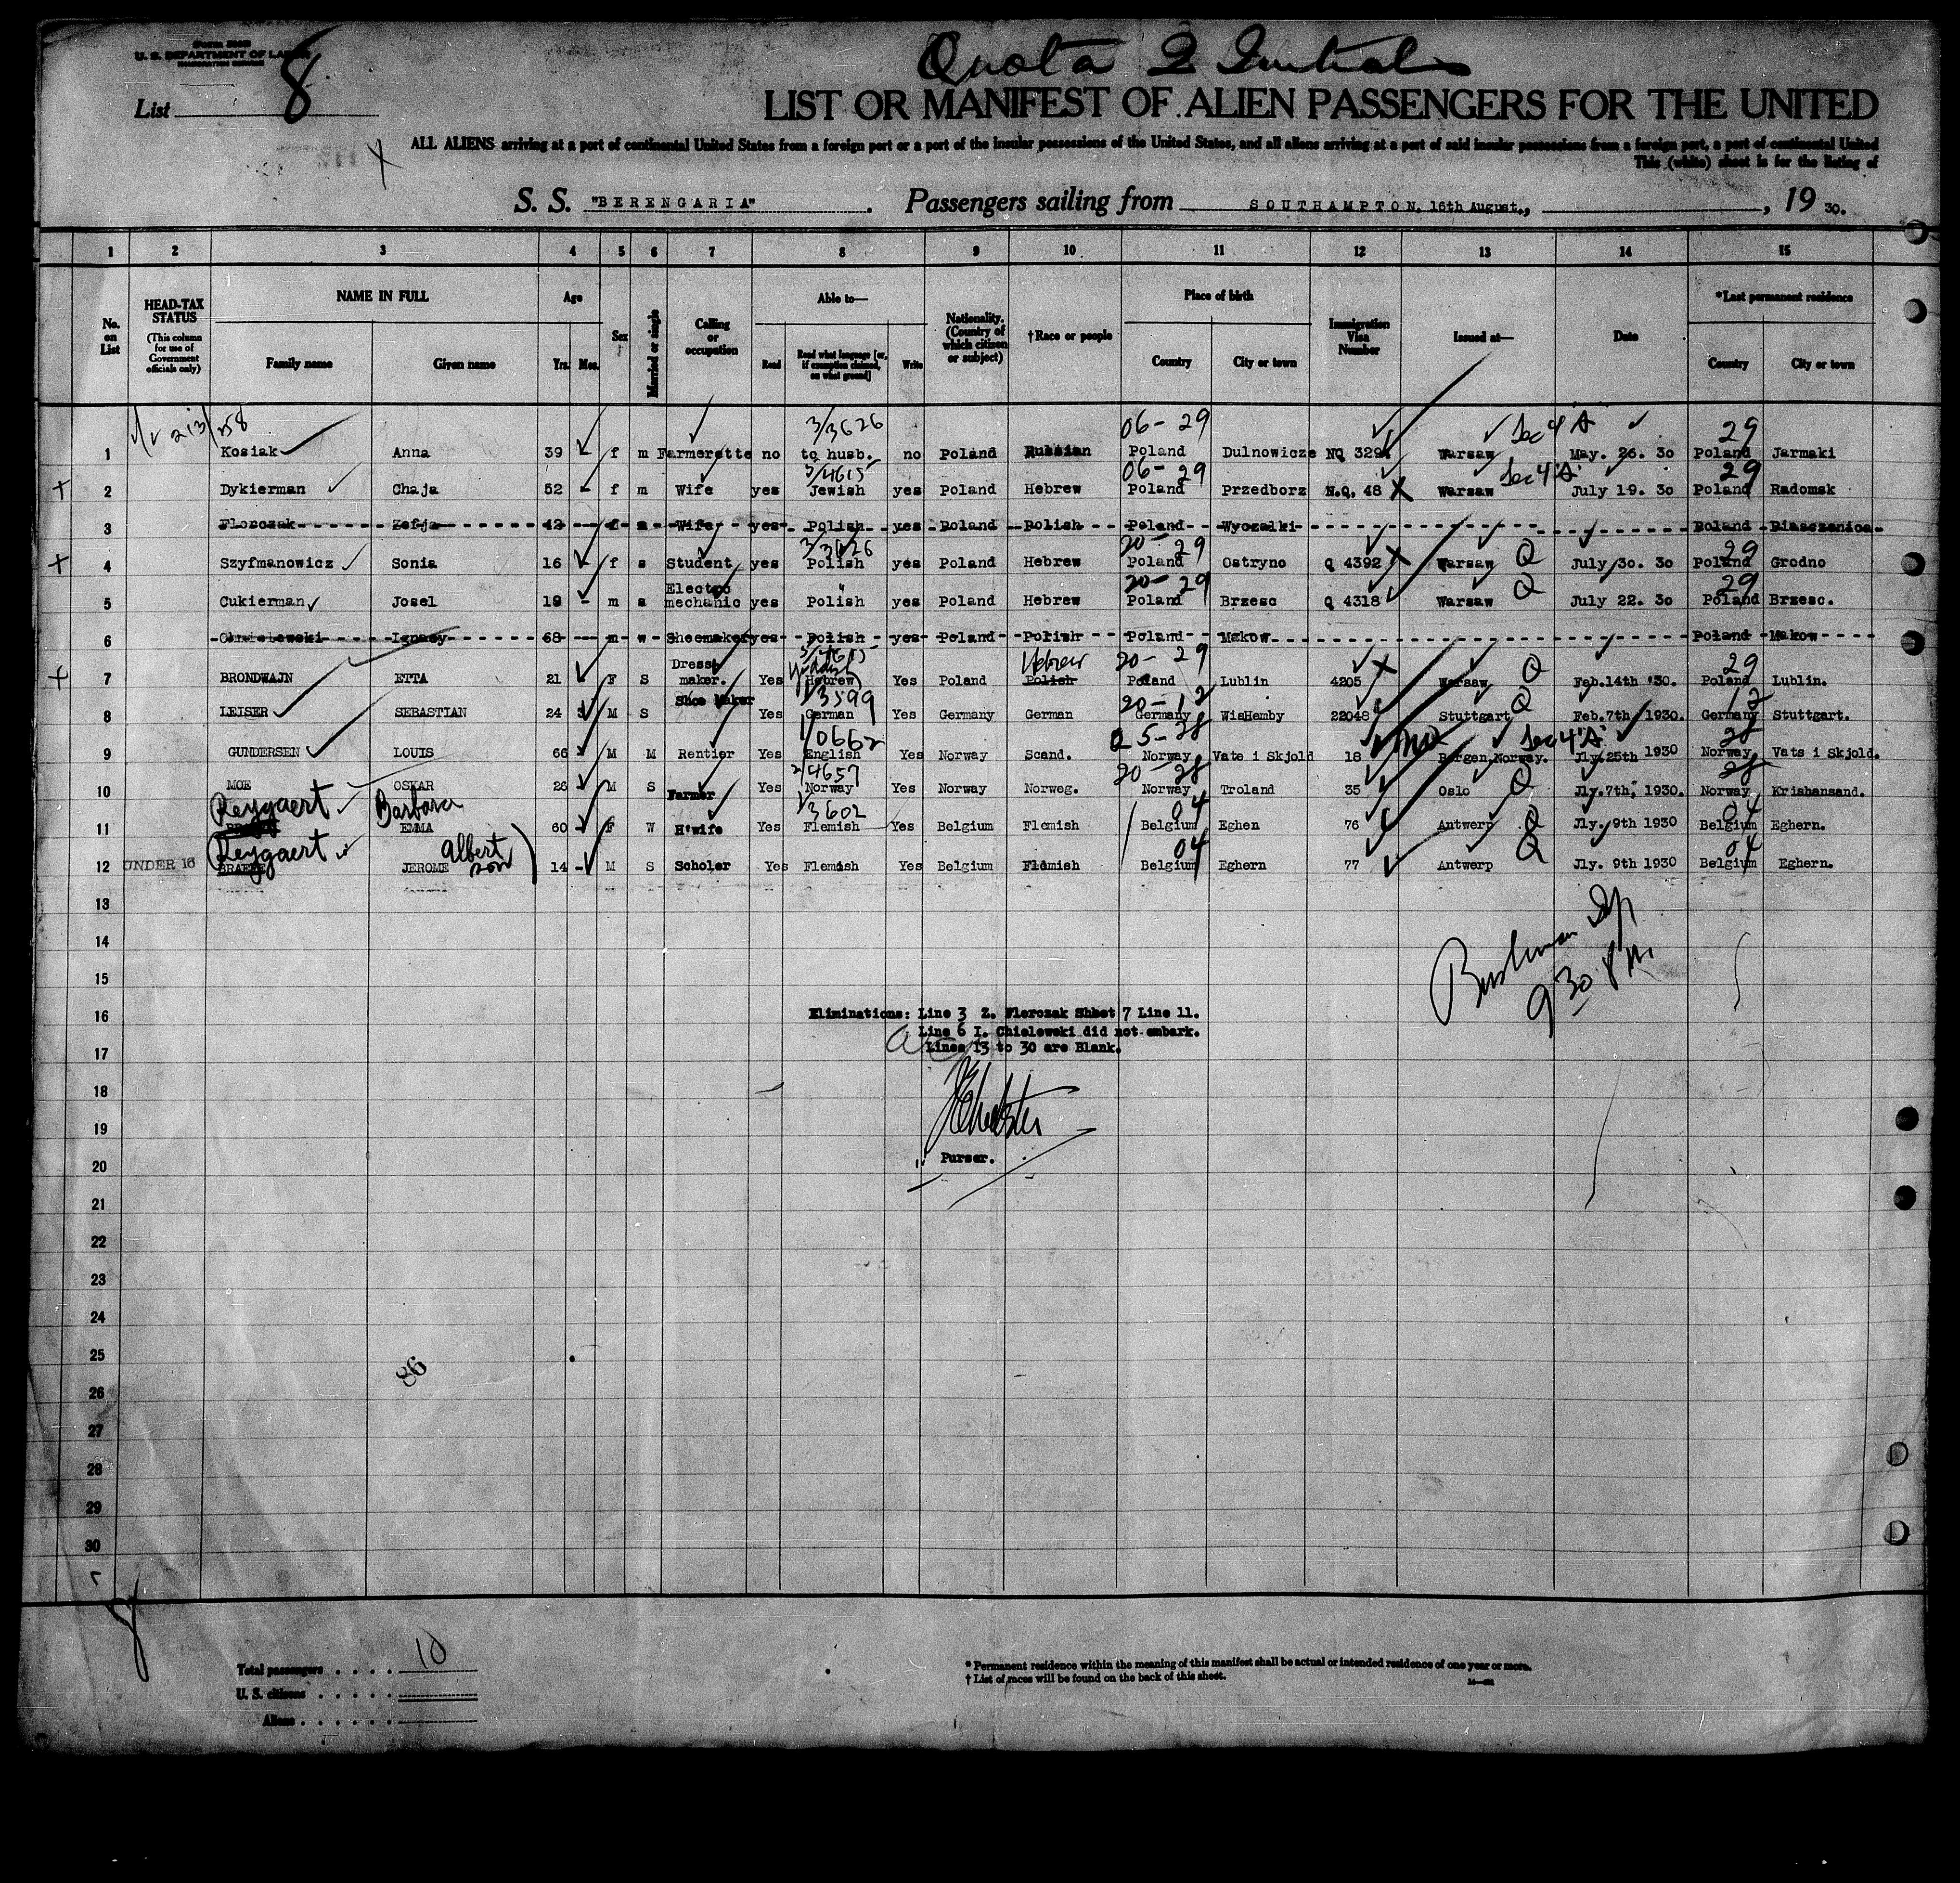 U. S. DEPARTMENT OF LABOR
Quota
List 8
LIST OR MANIFEST OF ALIEN PASSENGERS FOR THE UNITED
ALL ALIENS arriving at a port of continental United States from a foreign port or a port of the insular possessions of the United States, and all aliens arriving at a port of said insular possessions from a foreign port, a port of continental United
This (white) sheet is for the listing of
S. S. "BERENGARIA". Passengers sailing from SOUTHAMPTON, 16th August., , 19 30.
1 2 3 4 5 6 7 8 9 10 11 12 13 14 15
No. on List
HEAD-TAX STATUS (This column for use of Government officials only)
NAME IN FULL Family name Given name
Age Yrs. Mos.
Sex
Married or single
Calling or occupation
Able to— Read Read what language [or, if exemption claimed, on what ground] Write
Nationality. (Country of which citizen or subject)
†Race or people
Place of birth Country City or town
Immigration Visa Number
Issued at—
Date
*Last permanent residence Country City or town
3/3626 06-29 Sec 4 "A" 29
1 Kosiak Anna 39 f m Farmerette no to husb. no Poland Russian Poland Dulnowicze NQ 329 Warsaw May. 26. 30 Poland Jarmaki
3/4615 06-29 Sec 4 "A" 29
2 Dykierman Chaja 52 - f m Wife yes Jewish yes Poland Hebrew Poland Przedborz N.Q. 48 X Warsaw July 19. 30 Poland Radomsk
3 Florczak Zofja 42 f m Wife yes Polish yes Poland Polish Poland Wyczalki Poland Piaszczenica
3/3626 20-29 29
4 Szyfmanowicz Sonia 16 - f s Student yes Polish yes Poland Hebrew Poland Ostryno Q 4392 X Warsaw Q July 30. 30 Poland Grodno
20-29 29
5 Cukierman Josel 19 - m s Electro mechanic yes Polish yes Poland Hebrew Poland Brzesc Q 4318 Warsaw Q July 22. 30 Poland Brzesc.
6 Chmielewski Ignacy 68 m w Shoemaker yes Polish yes Poland Polish Poland Makow Poland Makow
3/4615 Yiddish Hebrew 20-29 29
7 BRONDWAJN ETTA 21 F S Dress maker. Yes Hebrew Yes Poland Polish Poland Lublin 4205 X Warsaw Q Feb.14th '30. Poland Lublin.
1/3599 20-12 12
8 LEISER SEBASTIAN 24 M S Shoe Maker Yes German Yes Germany German Germany WisHemby 22048 Stuttgart Q Feb.7th 1930. Germany Stuttgart.
1/0662 05-28 NQ Sec 4 "A" 28
9 GUNDERSEN LOUIS 66 M M Rentier Yes English Yes Norway Scand. Norway Vate i Skjold 18 Bergen, Norway. Jly.25th 1930 Norway Vats i Skjold.
2/4657 20-28 28
10 MOE OSKAR 26 M S Farmer Yes Norway Yes Norway Norweg. Norway Troland 35 Oslo Q Jly.7th, 1930. Norway Krishansand.
Reygaert Barbara 1/3602 04 04
11 EMMA 60 - F W H'wife Yes Flemish Yes Belgium Flemish Belgium Eghen 76 Antwerp Q Jly. 9th 1930 Belgium Eghern.
Reygaert Albert son 04 04
12 UNDER 16 JEROME 14 - M S Scholar Yes Flemish Yes Belgium Flemish Belgium Eghern 77 Antwerp Q Jly. 9th 1930 Belgium Eghern.
13
14
15
9 30 PM
16 Eliminations: Line 3 Z. Florczak Sheet 7 Line 11.
Line 6 I. Chielewski did not embark.
17 Lines 13 to 30 are Blank.
18
19
20 Purser.
21
22
23
24
25
86
26
27
28
29
30
Total passengers . . . . 10
U. S. citizens . . . . .
Aliens . . . . . .
* Permanent residence within the meaning of this manifest shall be actual or intended residence of one year or more.
† List of races will be found on the back of this sheet.